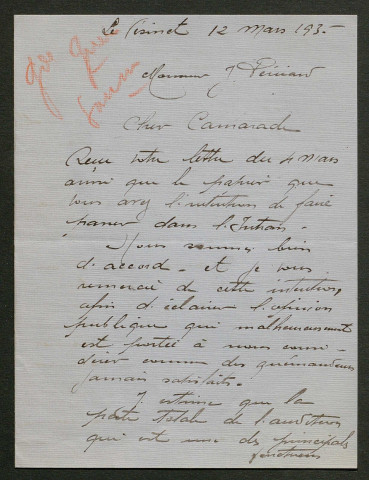 Le Vésinet 12 Mars 193-
Monsieur J.
Cher Camarade
Reçu votre lettre du 4 Mars
ainsi que le papier que
vous avez l'intention de faire
passer dans l'Intran.
Nous sommes bien
d'accord - et je vous
remercie de cette intention,
afin d'éclairer l'opinion
publique qui malheureusement
est portée à nous consi-
dérer comme des quémandeurs
jamais satisfaits.
J'estime que la
perte totale de l'audition
qui est une des principales
fonctions